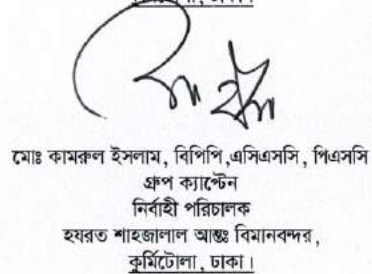 মোঃ কামরুল ইসলাম, বিপিপি,এসিএসসি, পিএসসি
গ্রুপ ক্যাপ্টেন
নির্বাহী পরিচালক
হযরত শাহজালাল আন্তঃ বিমানবন্দর,
কুর্মিটোলা, ঢাকা।